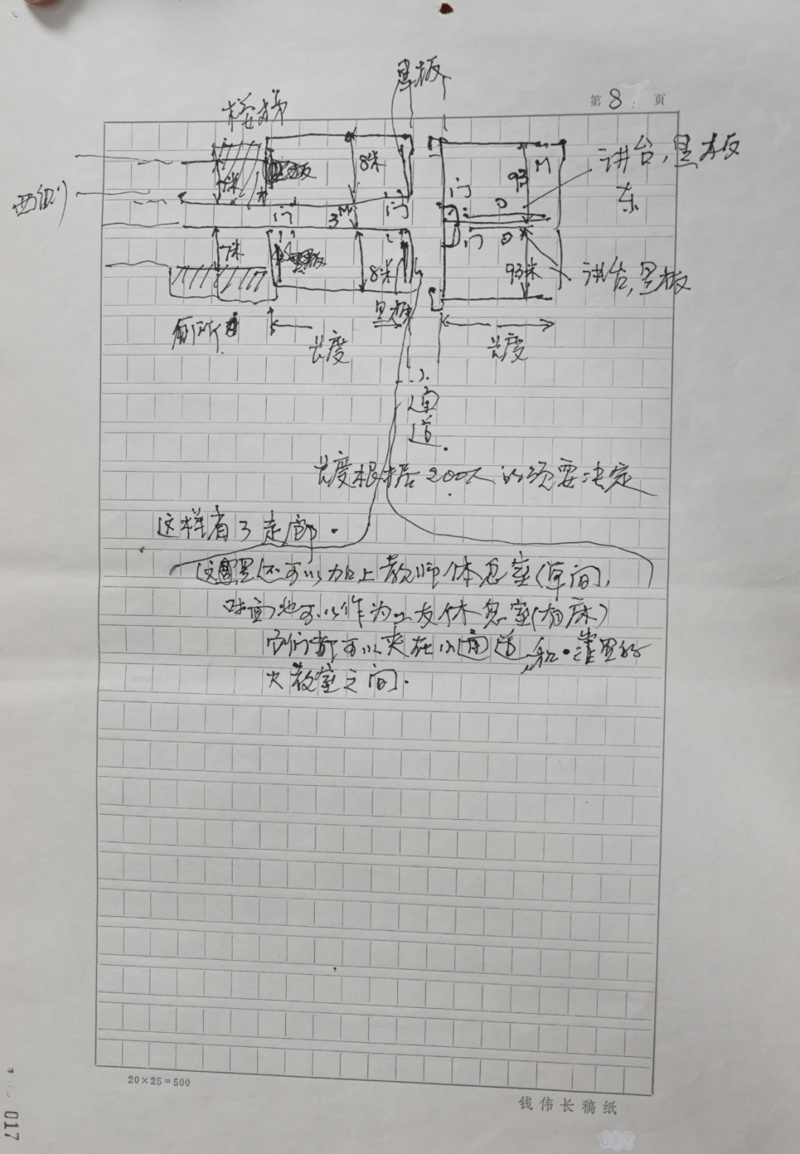 第 8 页
黑板
楼梯
讲台,黑板
8米
93M
西侧
东
7米
门
3M
门
门
门
7米
8米
93米
讲台,黑板
厕所
黑板
长度
长度
小通道
长度根据200人的须要决定
这样省了走廊.
这里还可以加上教师休息室(单间),
对面也可以作为工友休息室(有床)
它们都可以夹在小通道和靠里的
大教室之间.
20×25=500
钱伟长稿纸
017